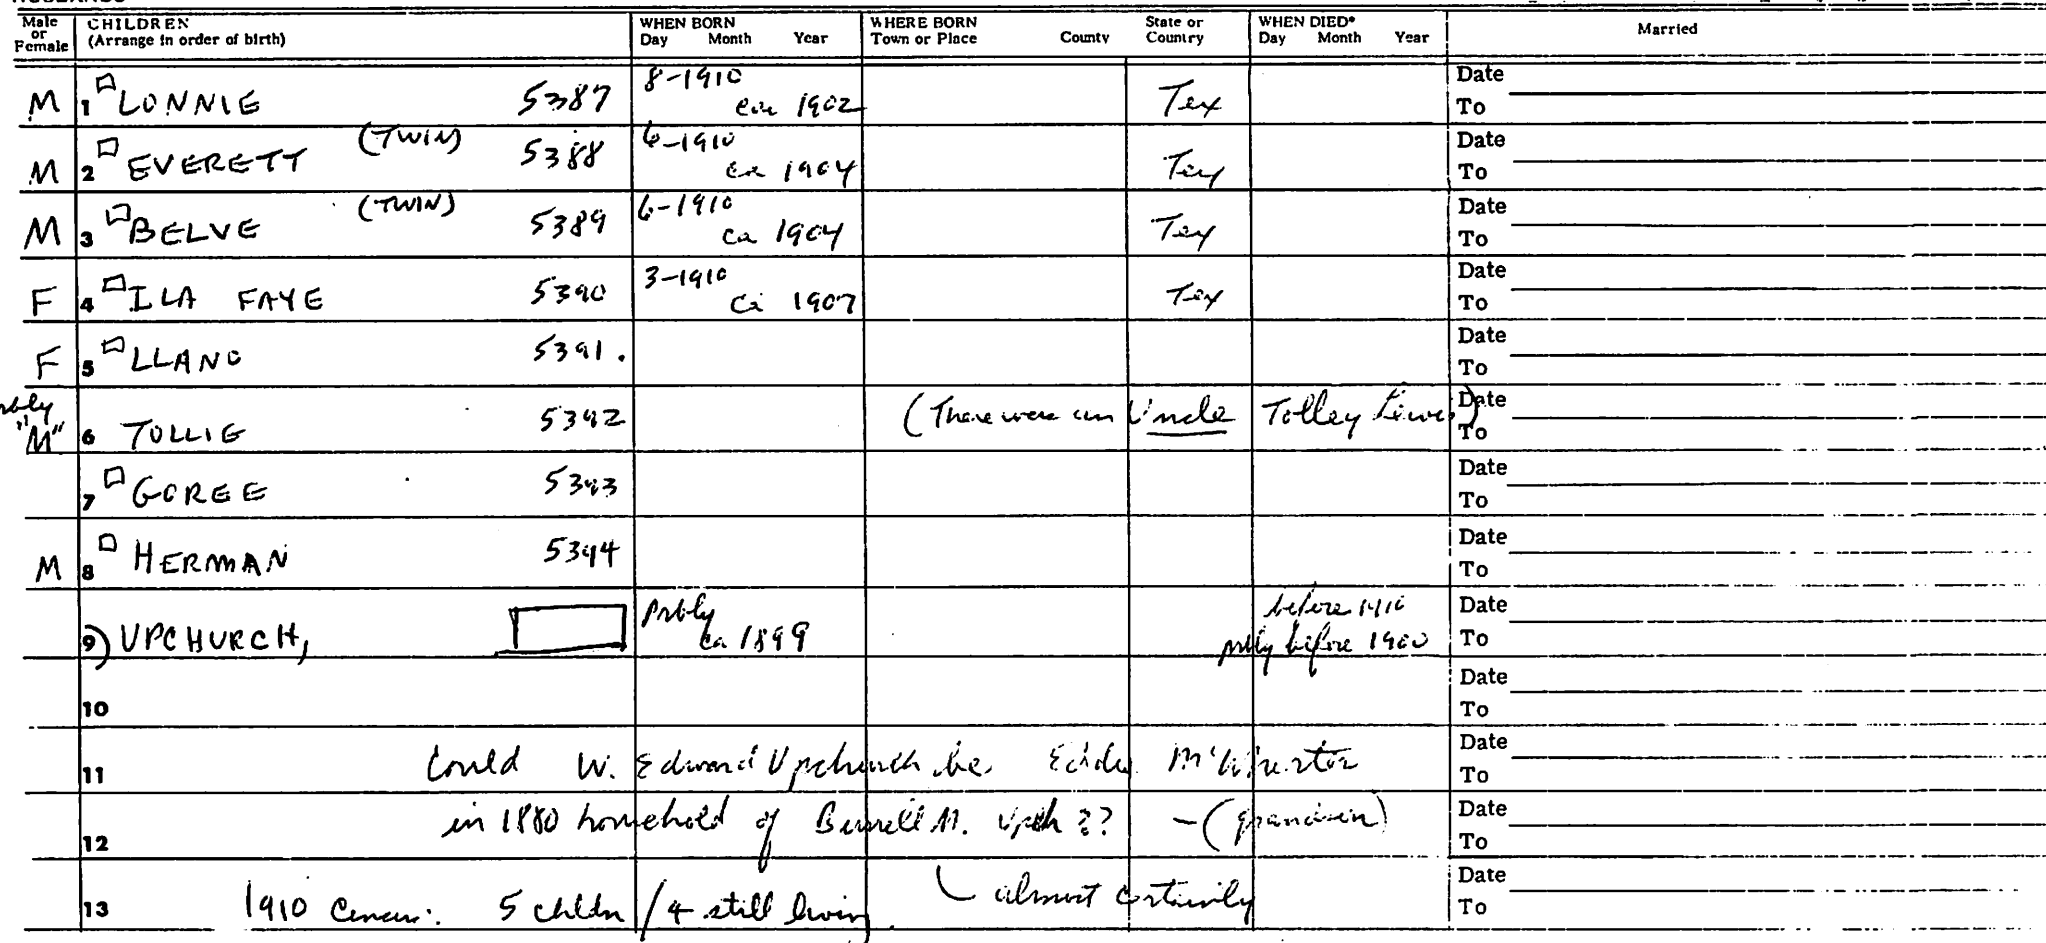 Male or Female CHILDREN (Arrange in order of birth) WHEN BORN Day Month Year WHERE BORN Town or Place County State or Country WHEN DIED* Day Month Year Married
M 1 LONNIE 5387 8-1910 ca 1902 Tex Date To
M 2 EVERETT (TWIN) 5388 6-1910 ca 1904 Tex Date To
M 3 BELVE (TWIN) 5389 6-1910 ca 1904 Tex Date To
F 4 ILA FAYE 5390 3-1910 Ca 1907 Tex Date To
F 5 LLANO 5391. Date To
"M" 6 TOLLIE 5392 (There were an Uncle Tolley Lewis) Date To
7 GOREE 5393 Date To
M 8 HERMAN 5394 Date To
9) UPCHURCH, Prbly ca 1899 before 1910 prbly before 1900 Date To
10 Date To
11 Could W. Edward Upchurch be Eddy McWhirter Date To
12 in 1880 household of Burrell M. Upch ?? - (grandson) Date To
13 1910 Census: 5 chldn / 4 still living almost certainly Date To